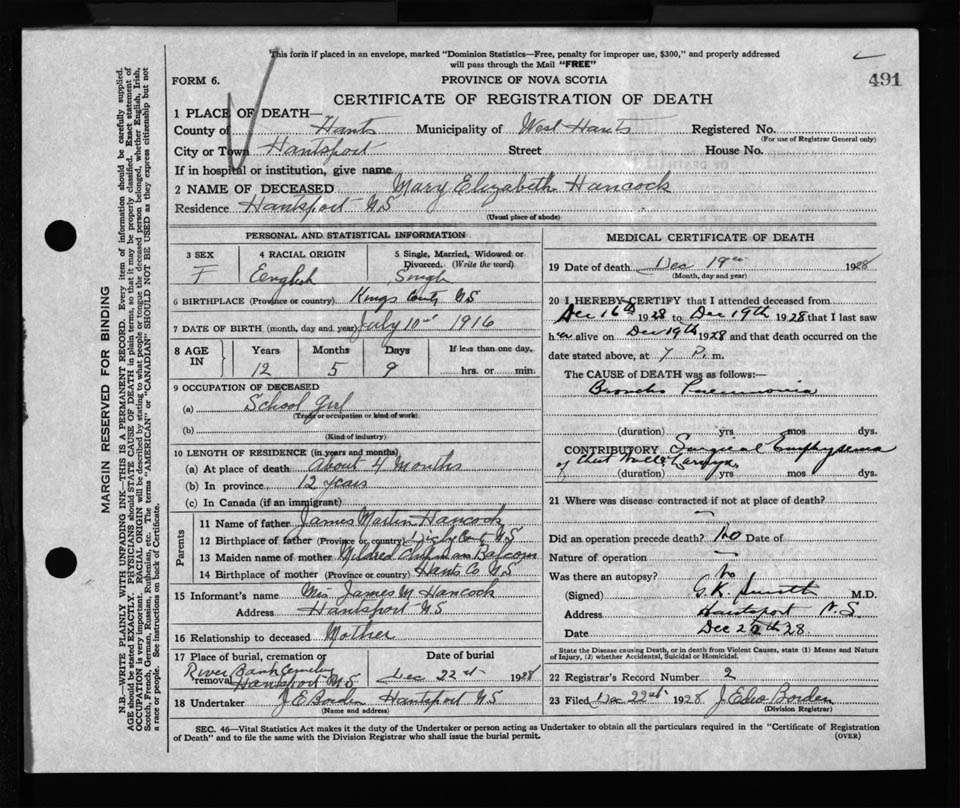 This form if placed in an envelope, marked "Dominion Statistics—Free, penalty for improper use, $300," and properly addressed
will pass through the Mail "FREE"
491
FORM 6.
PROVINCE OF NOVA SCOTIA
CERTIFICATE OF REGISTRATION OF DEATH
1 PLACE OF DEATH—
County of Hants Municipality of West Hants Registered No.
(For use of Registrar General only)
City or Town Hantsport Street House No.
If in hospital or institution, give name
2 NAME OF DECEASED Mary Elizabeth Hancock
Residence Hantsport N.S
(Usual place of abode)
MARGIN RESERVED FOR BINDING
N.B.—WRITE PLAINLY WITH UNFADING INK—THIS IS A PERMANENT RECORD. Every item of information should be carefully supplied.
AGE should be stated EXACTLY. PHYSICIANS should STATE CAUSE OF DEATH in plain terms, so that it may be properly classified. Exact statement of
OCCUPATION is very important. RACIAL ORIGIN will be described by stating to what people or tongue the deceased person belonged, whether English, Irish,
Scotch, French, German, Russian, Ruthenian, etc. The terms "AMERICAN" or "CANADIAN" SHOULD NOT BE USED as they express citizenship but not
a race or people. See instructions on back of Certificate.
PERSONAL AND STATISTICAL INFORMATION
3 SEX 4 RACIAL ORIGIN 5 Single, Married, Widowed or
Divorced. (Write the word)
F English Single
6 BIRTHPLACE (Province or country) Kings County N S
7 DATE OF BIRTH (month, day and year) July 10 1916
8 AGE IN Years Months Days If less than one day,
12 5 9 hrs. or min.
9 OCCUPATION OF DECEASED
(a) School girl
(Trade or occupation or kind of work)
(b)
(Kind of industry)
10 LENGTH OF RESIDENCE (in years and months)
(a) At place of death About 4 months
(b) In province 12 years
(c) In Canada (if an immigrant)
Parents
11 Name of father James Martin Hancock
12 Birthplace of father (Province or country) Digby County N S
13 Maiden name of mother Mildred Chipman Balcom
14 Birthplace of mother (Province or country) Hants Co N S
15 Informant's name Mrs James M Hancock
Address Hantsport N S
16 Relationship to deceased Mother
17 Place of burial, cremation or removal Date of burial
River Bank Cemetery
Hantsport N S Dec 22 1928
18 Undertaker J E Borden Hantsport N S
(Name and address)
MEDICAL CERTIFICATE OF DEATH
19 Date of death Dec 19 1928
(Month, day and year)
20 I HEREBY CERTIFY that I attended deceased from
Dec 16th 1928 to Dec 19th 1928 that I last saw
her alive on Dec 19th 1928 and that death occurred on the
date stated above, at 7 P. m.
The CAUSE OF DEATH was as follows:—
Broncho Pneumonia
(duration) yrs mos dys.
CONTRIBUTORY Surgical Emphysema
of Chest Walls & Larynx
(duration) yrs mos dys.
21 Where was disease contracted if not at place of death?
Did an operation precede death? No Date of
Nature of operation
Was there an autopsy? No
(Signed) G.K. Smith M.D.
Address Hantsport N.S.
Date Dec 28.
State the Disease causing Death, or in death from Violent Causes, state (1) Means and Nature
of Injury, (2) whether Accidental, Suicidal or Homicidal.
22 Registrar's Record Number 2
23 Filed Dec 22 1928 J. Borden
(Division Registrar)
SEC. 46—Vital Statistics Act makes it the duty of the Undertaker or person acting as Undertaker to obtain all the particulars required in the "Certificate of Registration
of Death" and to file the same with the Division Registrar who shall issue the burial permit.
(OVER)